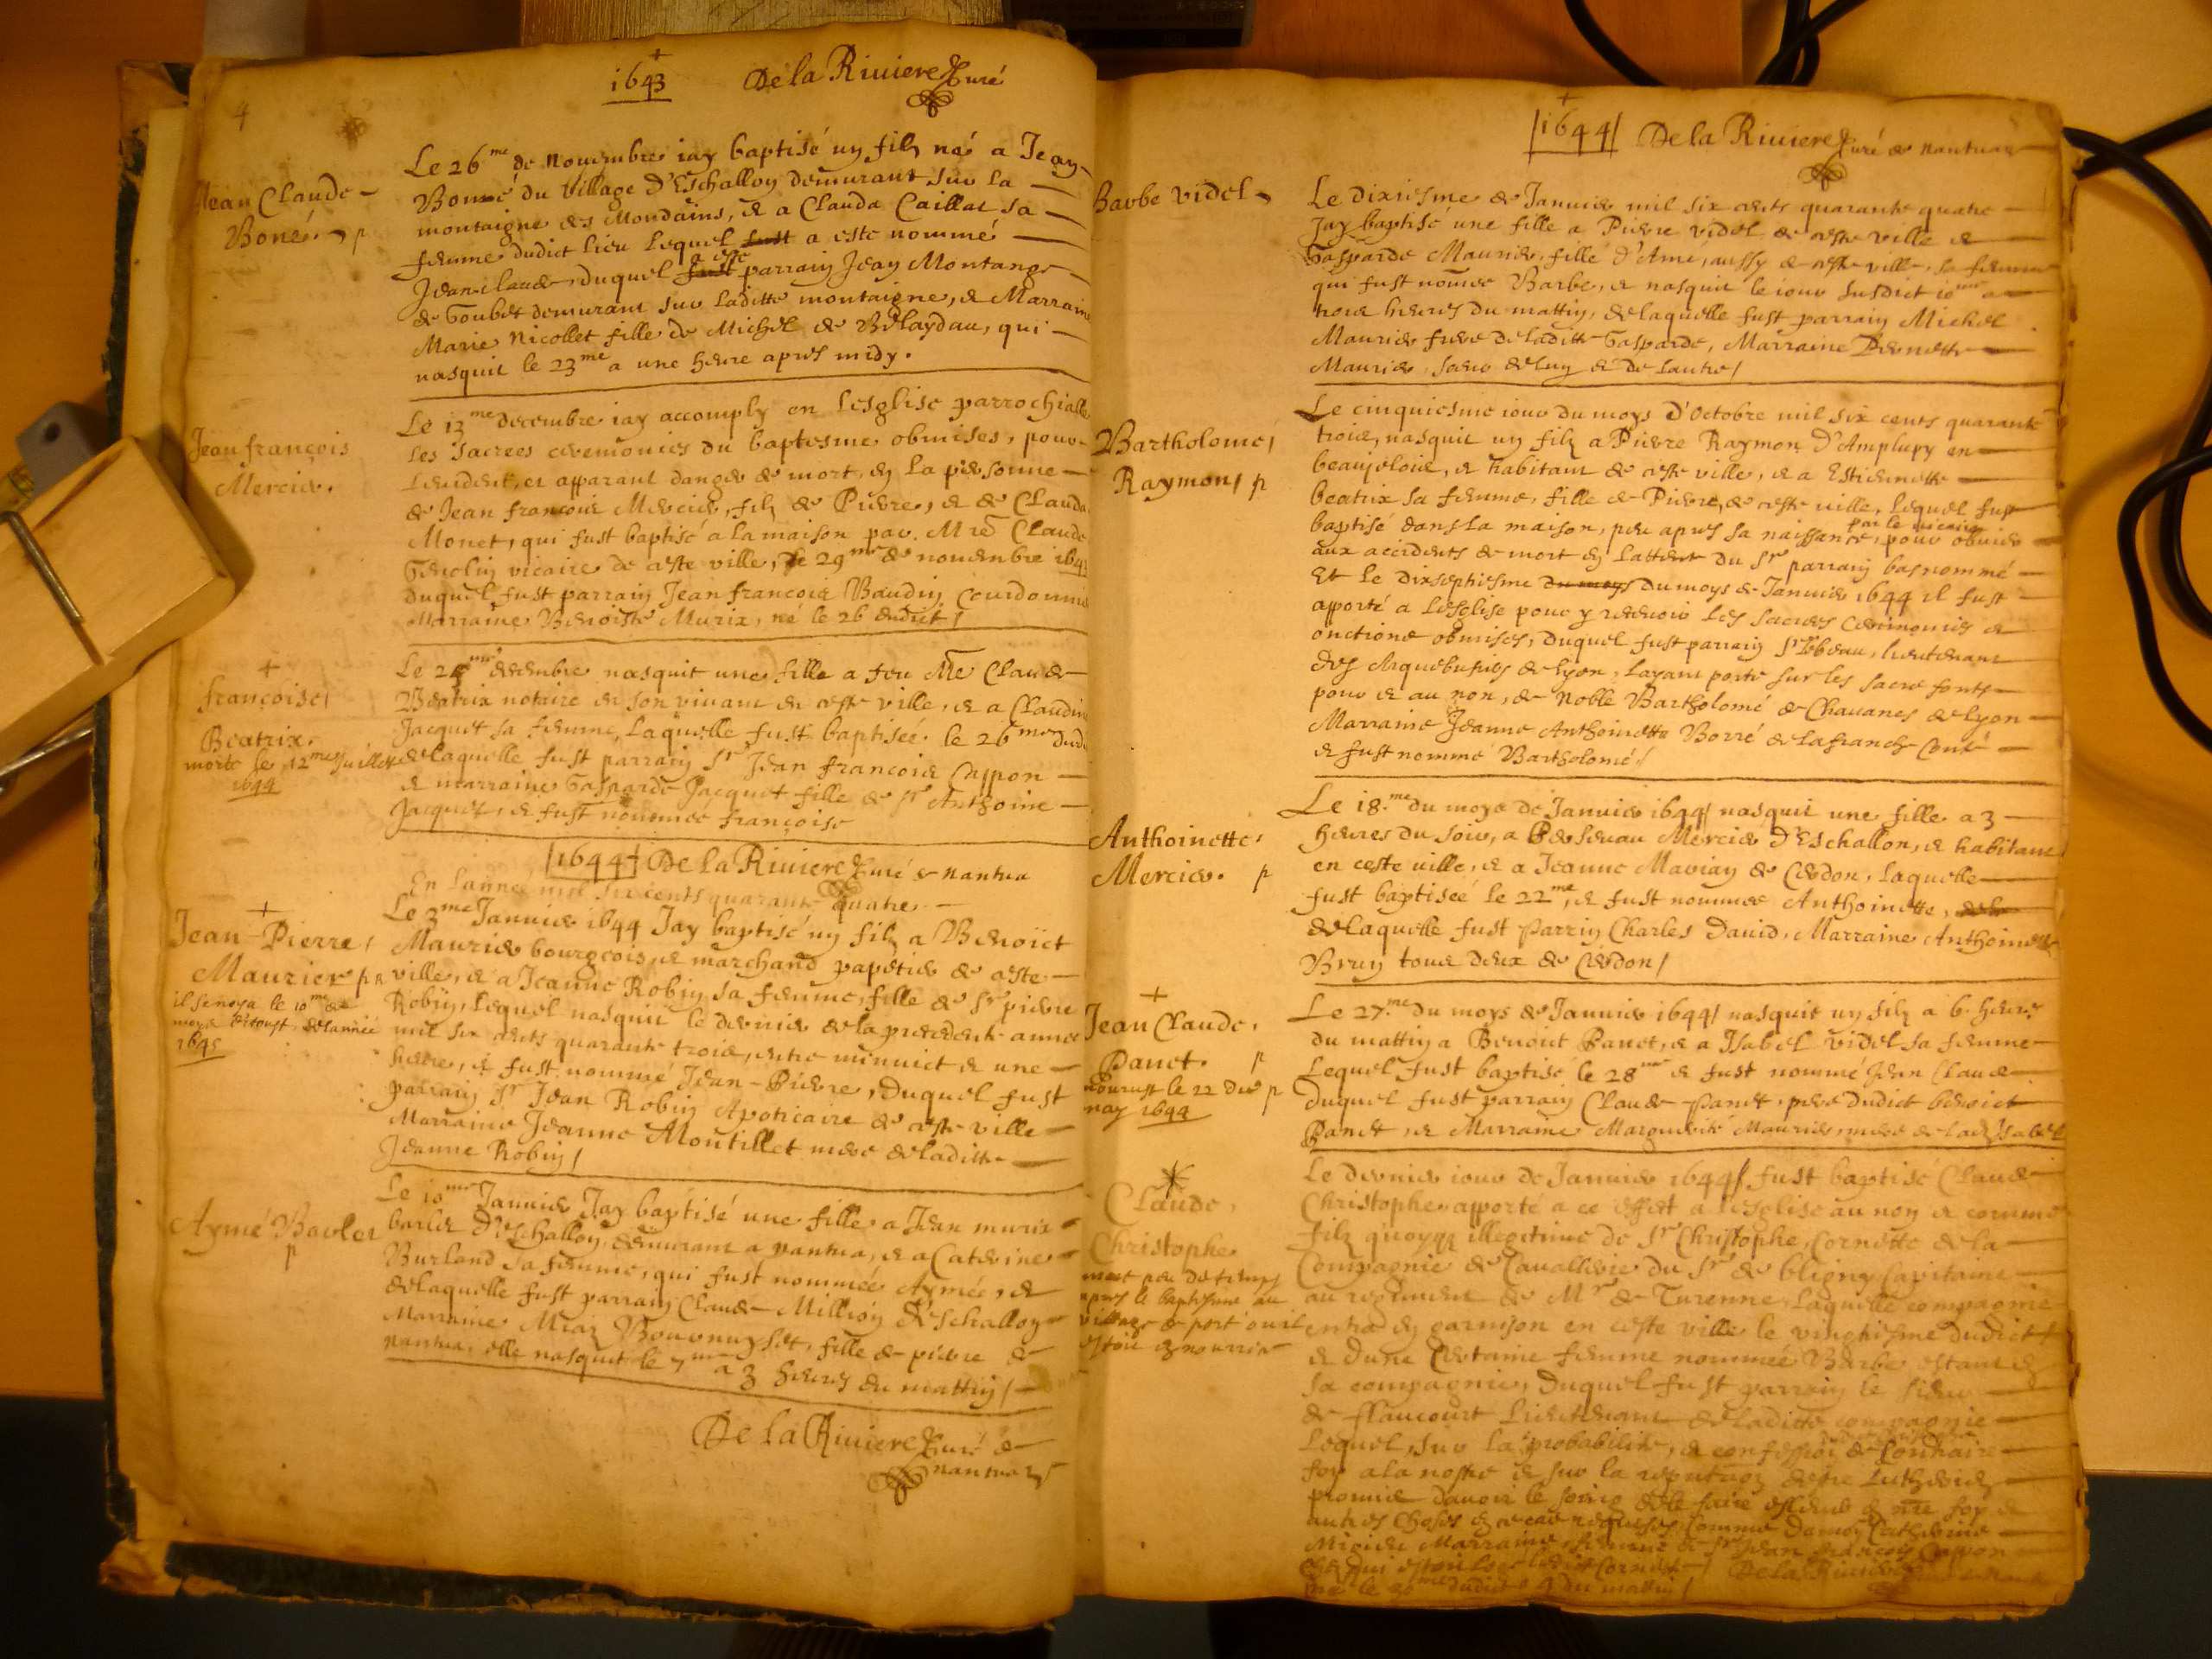 4
1643 De la Riviere Curé
Jean Claude
Boné. p
Le 26.me de Nouembre iay baptisé un filz né a Jean
Bonné du village d'Eschallon demurant sur la
montaigne des Mondains, et a Clauda Caillat sa
femme dudict lieu lequel fust a esté nommé
Jean-claude, duquel fust a esté parrain Jean Montange
de Goubet demurant sur laditte montaigne, et Marraine
Marie Nicollet fille de Michel de Belaydau, qui
nasquit le 23me a une heure apres midy.
Jean françois
Mercier.
Le 13me decembre iay accomply en Lesglise parrochialle
les sacrees ceremonies du baptesme obmises, pour
Leuident, et apparant danger de mort, en la personne
de Jean françois Mercier, filz de Pierre, et de Clauda
Monet, qui fust baptisé a la maison par Mre Claude
vicaire de ceste ville, le 29me de nouembre 1643
duquel fust parrain Jean françois Baudin Courdonnier
Marraine Benoiste Murix, né le 26 dudict /
françoise /
Beatrix.
morte le 12me Juillet
1644
Le 24me decembre nasquit une fille a feu Me Claude
Beatrix notaire en son viuant en ceste ville, et a Claudine
Jacquet sa femme, Laquelle fust baptisée le 26me dud.
de laquelle fust parrain Sr Jean françois Cappon
et marraine Gasparde Jacquet fille de Sr Anthoine
Jacquet, et fust nommée françoise
1644 De la Riviere Curé de Nantua
En Lannee mil six cents quarante quatre
Jean-Pierre /
Maurier p R
il se noya le 10me de
moys d'Aoust, de lannée
1645
Le 3me Januier 1644 Jay baptisé un filz a Benoict
Maurier bourgeois, et marchand papetier de ceste
ville, et a Jeanne Robin sa femme, fille de Sr pierre
Robin, Lequel nasquit le dernier de la precedente annee
mil six cents quarante trois, entre minuict et une
heure, et fust nommé Jean-Pierre, Duquel fust
parrain Sr Jean Robin Apoticaire de ceste ville
Marraine Jeanne Montillet mere de laditte
Jeanne Robin /
Aymé Barlet
p
Le 10me Januier Jay baptisé une fille a Jean murix
barlet D'Eschallon, demurant a nantua, et a Caterine
Burland sa femme, qui fust nommée Aymée, et
de laquelle fust parrain Claude Million d'Eschallon
Marraine fille de pierre de
nantua, elle nasquit le 7me a 3 heures du mattin /
De la Riviere Curé de
nantua
1644 De la Riviere Curé de Nantua
Barbe Videl
Le dixiesme de Januier mil six cents quarante quatre
Jay baptisé une fille a Pierre Videl de ceste ville et
Gasparde Maurier, fille d'Amé, aussy de ceste ville, sa femme
qui fust nomée Barbe, et nasquit le iour susdict 10me a
trois heures du mattin, de laquelle fust parrain Michel
Maurier frere de laditte Gasparde, Marraine Pernette
Maurier soeur de luy et de lautre /
Bartholomé /
Raymon / p
Le cinquiesme iour du moys d'Octobre mil six cents quarante
trois, nasquit un filz a Pierre Raymon d'Amplupy en
beaujolois, et habitant de ceste ville, et a Estiennette
beatrix sa femme, fille de Pierre, de ceste ville, lequel fust
baptisé dans la maison, peu apres sa naissance, par le vicaire pour obuier
aux accidents de mort en lattente du Sr parrain bas nommé
Et le dixseptiesme du moys du moys de Januier 1644 il fust
apporté a Lesglise pour y receuoir les sacrees Ceremonies et
onctions obmises, duquel fust parrain Sr lieutenant
des Arquebusiers de Lyon, Layant porté sur les sacre fonts
pour et au non, de Noble Bartholomé de Chauanes de Lyon
Marraine Jeanne Anthoinette Borré de la franche Conté
et fust nommé Bartholomé /
Anthoinette
Mercier. p
Le 18.me du moys de Januier 1644 / nasquit une fille a 3
heures du soir, a Mercier d'Eschallon, et habitant
en ceste ville, et a Jeanne Mavian de Cerdon, laquelle
fust baptisée le 22me, et fust nommée Anthoinette,
de laquelle fust Parrin Charles Dauid, Marraine Anthoinette
Brun tous deux de Cerdon /
Jean Claude,
Panet. p
mourust le 22 de p
may 1644
Le 27.me du moys de Januier 1644 / nasquit un filz a 6. heures
du mattin a Benoict Panet, et a Isabel Videl sa femme
Lequel fust baptisé le 28me et fust nommé Jean Claude
Duquel fust parrain Claude Panet, pere dudict benoict
Panet, et Marraine Marguerite Maurier, mere de lad. Isabel
Claude,
Christophe
mort peu de temps
apres le baptesme au
village de port ou il
estoit en nourrice
Le dernier iour de Januier 1644 / fust baptisé Claude
Christophe, apporté a ce effect a lesglise au non et comme
filz quoyque illegitime de Sr Christophe, Cornette de la
Compagnie de Cauallerie du Sr de bligny Capitaine
au regiment de Mr de Turenne, Laquelle compagnie
entra en garnison en ceste ville le vingtiesme dudict
et d'une Certaine femme nommée Barbe estant en
sa compagnie, Duquel fust parrain le sieur
de flaucourt Lieutenant de laditte compagnie
Lequel, sur la probabilité, et confession de Contraire
foy a la nostre et sur la reputation destre Lutherien
promit dauoir le soing de le faire esleuer en nre foy et
autres choses en ce cas requises, Comme Catherine
Marraine, femme de Sr Jean françois Cappon
chez qui estoit Logé ledict Cornette / De la Riviere
né le 30me dudict a 4 du mattin /